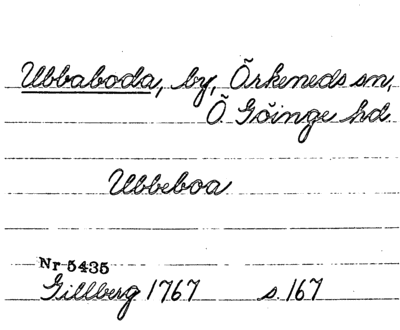 Ubbaboda, by, Örkeneds sn,
Ö. Göinge hd.
Ubbeboa
Nr 5435
Gillberg 1767 s. 167